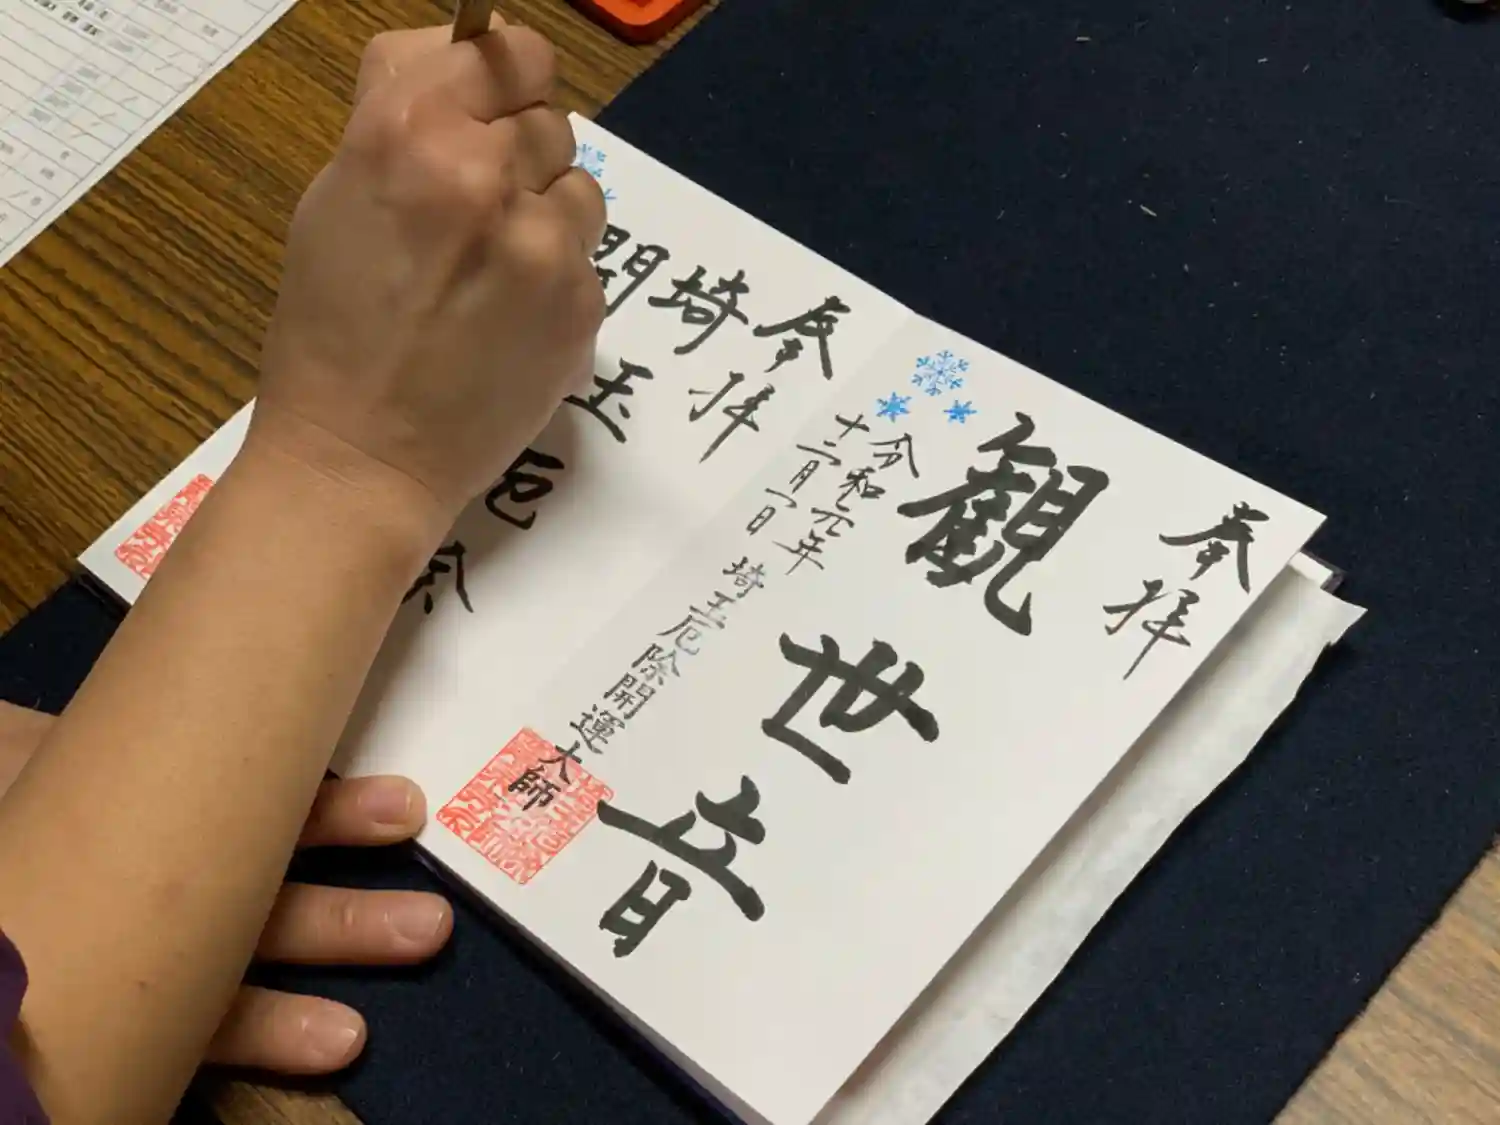 奉拝
観世音
令和元年
十二月一日
埼玉厄除開運大師
奉拝
埼玉厄除
開